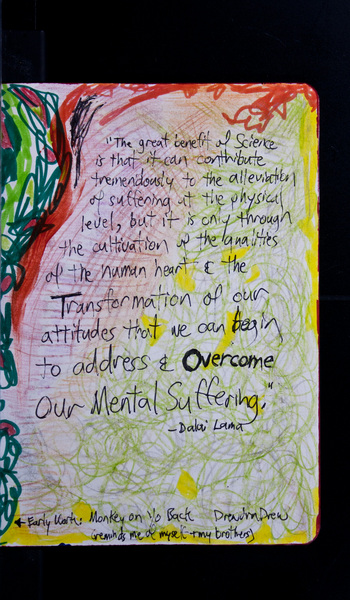 "The great benefit of Science
is that it can contribute
tremendously to the alleviation
of suffering at the physical
level, but it is only through
the cultivation of the qualities
of the human heart & the
Transformation of our
attitudes that we can begin
to address & Overcome
Our Mental Suffering."
- Dalai Lama
Early Work: Monkey on Back
(reminds me of myself + my brothers)